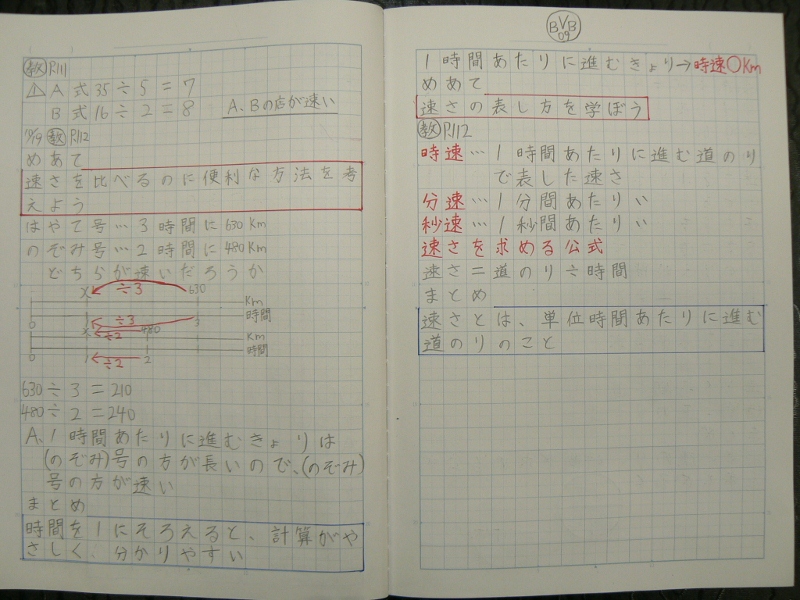 教 P.111
△ A 式 35÷5=7
B 式 16÷2=8 A、Bの店が速い
教 P.112
めあて
速さを比べるのに便利な方法を考
えよう
はやて号…3時間に630Km
のぞみ号…2時間に480Km
どちらが速いだろうか
X ÷3 630
Km
時間
0 1 ÷3 3
X ÷2 480
Km
時間
0 1 ÷2 2
630÷3=210
480÷2=240
A、1時間あたりに進むきょりは
(のぞみ)号の方が長いので、(のぞみ)
号の方が速い
まとめ
時間を1にそろえると、計算がや
さしく、分かりやすい
BVB
09
1時間あたりに進むきょり→時速〇Km
めあて
速さの表し方を学ぼう
教 P.112
時速…1時間あたりに進む道のり
で表した速さ
分速…1分間あたり〃
秒速…1秒間あたり〃
速さを求める公式
速さ=道のり÷時間
まとめ
速さとは、単位時間あたりに進む
道のりのこと